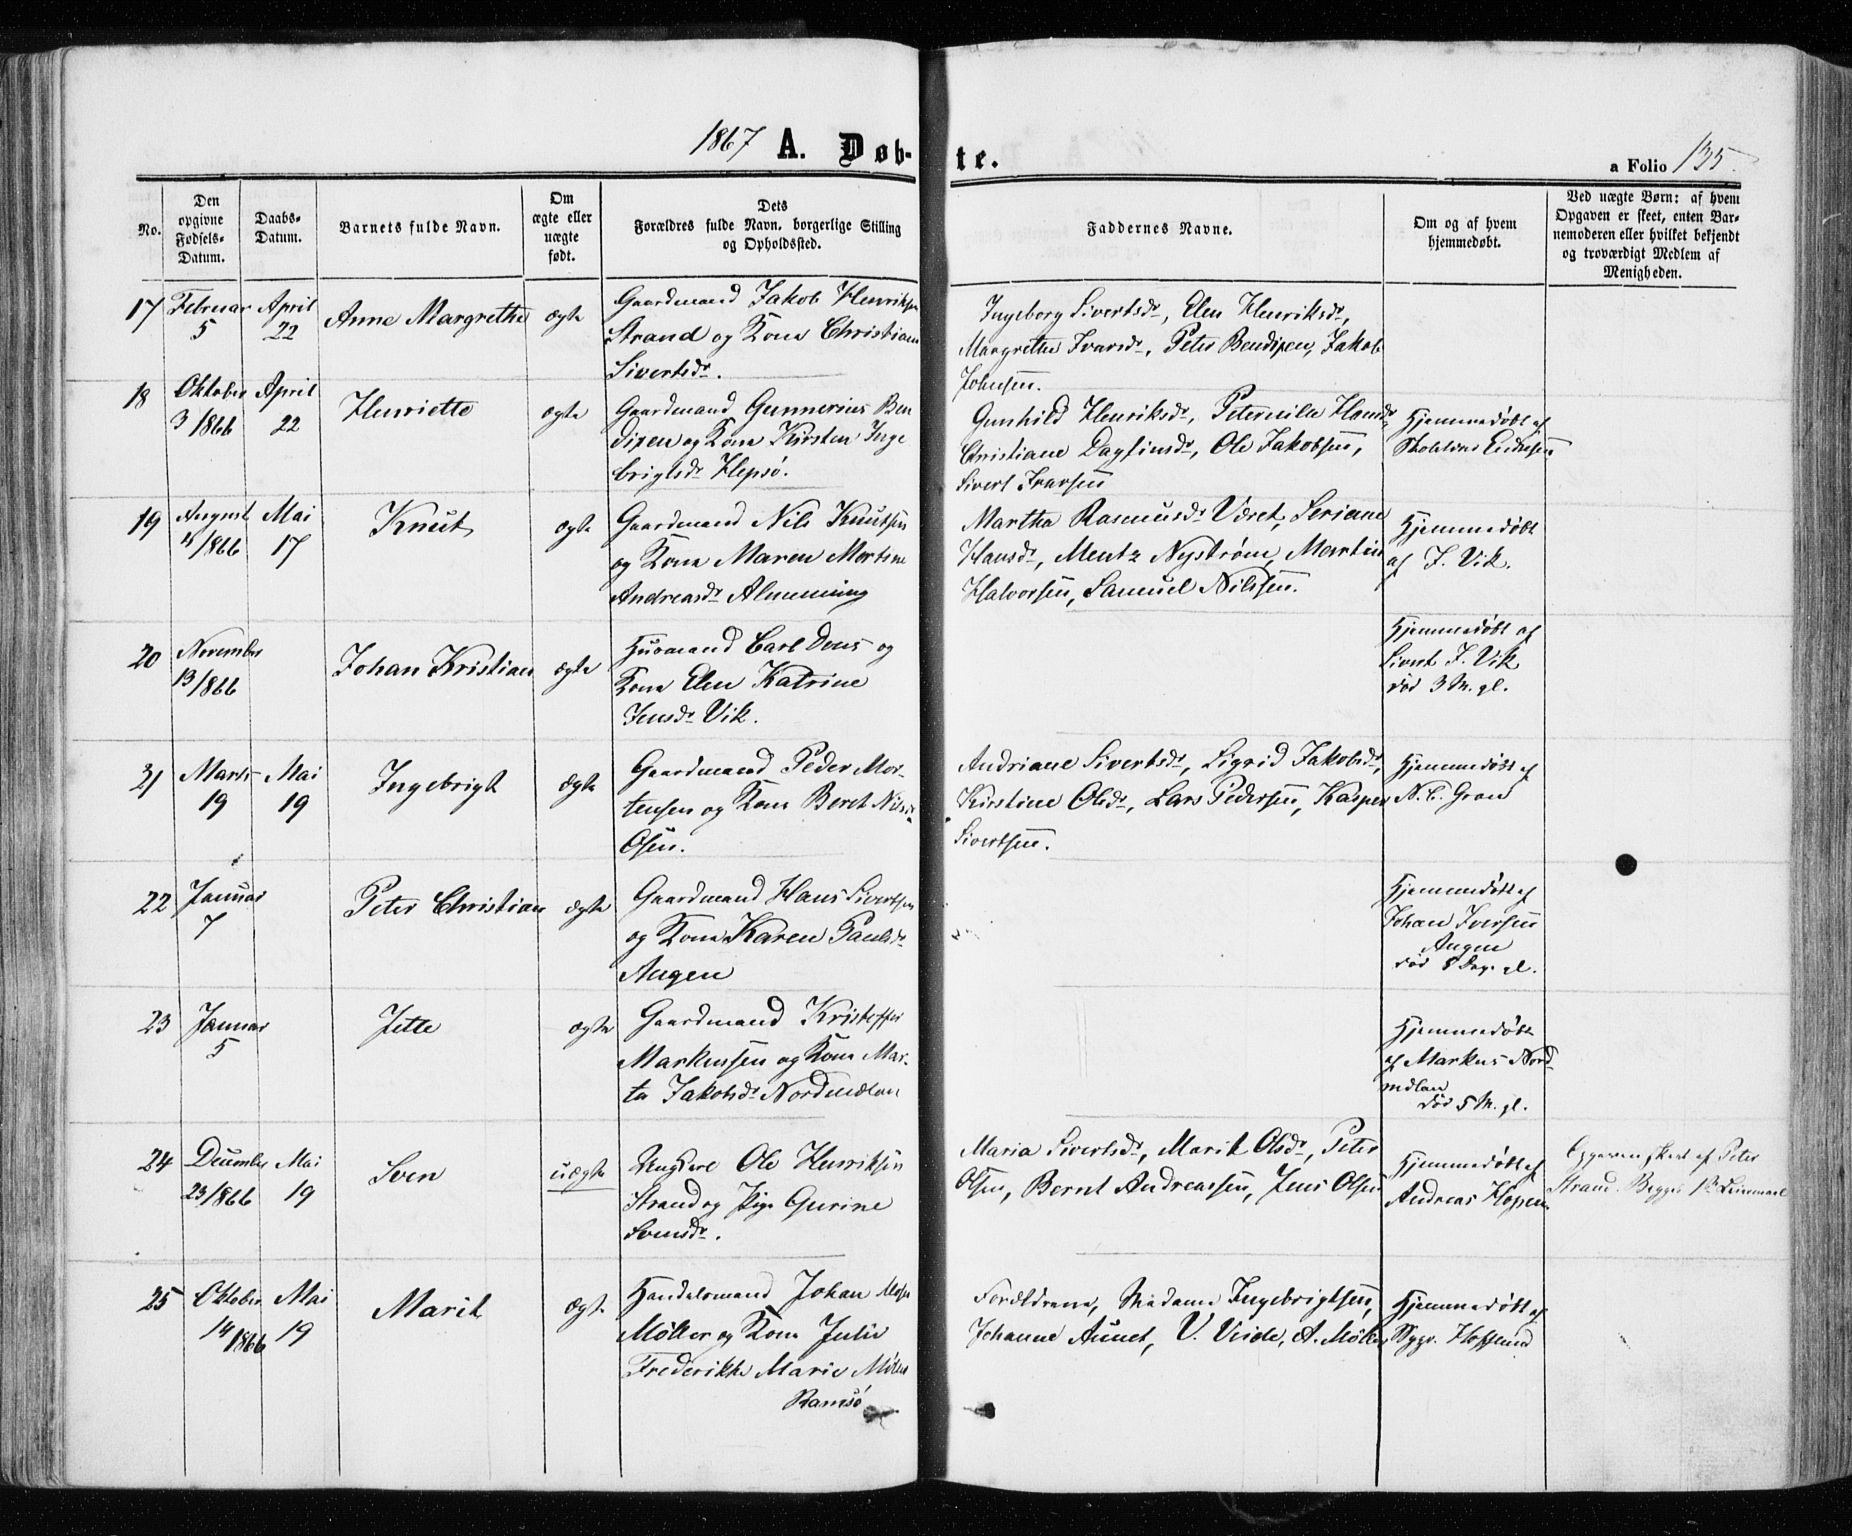 1867 A. Døb-
te.
a Folio 135.
No.
Den
opgivne
Fødsels-
Datum.
Daabs-
Datum.
Barnets fulde Navn.
Om
ægte eller
uægte
født.
Dets
Forældres fulde Navn, borgerlige Stilling
og Opholdssted.
Faddernes Navne.
Om og af hvem
hjemmedøbt.
Ved uægte Børn: af hvem
Opgaven er skeet, enten Bar-
nemoderen eller hvilket bekjendt
og troværdigt Medlem af
Menigheden.
17 Februar April Anne Margrethe ægte
5 22
Gaardmand Jakob Henriksen
Strand og Kone Christiane
Sivertsdr.
Ingeborg Sivertsdr, Elen Henriksdr,
Margrethe Ivarsdr, Peter Bendixen, Jakob
Johnsen.
18 Oktober April Henriette ægte
3/1866 22
Gaardmand Gunnerius Ben
dixen og Kone Kirsten Inge
brigtsdr Hepsø.
Gunhild Henriksdr, Petternille Hansdr,
Christiane Dagfinsdr, Ole Jakobsen,
Sivert Ivarsen
Hjemmedøbt af
19 August Mai Knut ægte
/1866 17
Gaardmand Nils Knutsen
og Kone Maren Martine
Andreasdr Almenning
Martha Rasmusdr Været, Seriane
Hansdr, Mentz Nystrøm, Martin
Halvorsen, Samuel Nilssen.
Hjemmedøbt
af J. Vik.
20 November Johan Kristian ægte
13/1866
Husmand Carl Dens og
Kone Elen Katrine
Jensdr Vik.
Hjemmedøbt af
Sivert J. Vik
død 3 M. gl.
21 Marts Mai Ingebrigt ægte
19 19
Gaardmand Peder Mor-
tensen og Kone Beret Nilsdr
Osen.
Andriane Sivertsdr, Sigrid Jakobsdr,
Kirstine Olsdr, Lars Pedersen, Kasper
Sivertsen.
Hjemmedøbt af
N. C. Gran
22 Januar Peter Christian ægte
7
Gaardmand Hans Sivertsen
og Kone Karen Paulsdr
Angen
Hjemmedøbt af
Johan Iversen
Angen
død 8 Dag. gl.
23 Januar Jette ægte
5
Gaardmand Kristoffer
Markussen og Kone Mar-
ta Jakobsdr Nordmelan
Hjemmedøbt
af Markus Nord-
melan
død 5 M. gl.
24 December Mai Sven uægte
23/1866 19
Ungkarl Ole Henriksen
Strand og Pige Gurine
Svensdr.
Maria Sivertsdr, Marit Olsdr, Peter
Olsen, Bernt Andreassen, Jens Olsen
Hjemmedøbt af
Andreas Hopen
Opgaven skeet af Peter
Strand. Begges 1ste Leiermaal
25 Oktober Mai Marit ægte
14 1866 19
Handelsmand Johan
Møller og Kone Julie
Frederikke Marie Møller
Ramsø
Forældrene, Madame Ingebrigtsen,
Johanne Aunet, V. Veide, A. Møller
Hjemmedøbt af
Sygr. Hofslund